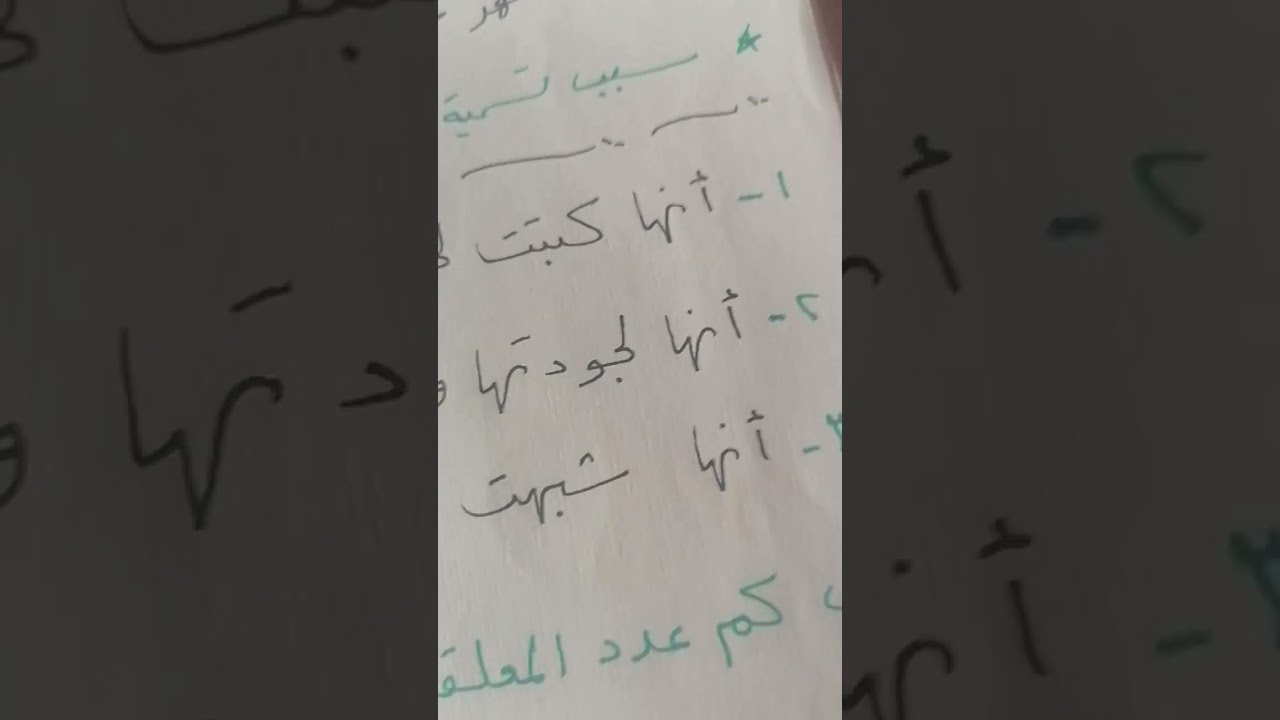 * سبب تسمية
١- أنها كتبت
٢- أنها لجودتها و
٣- أنها شبهت
كم عدد المعلق